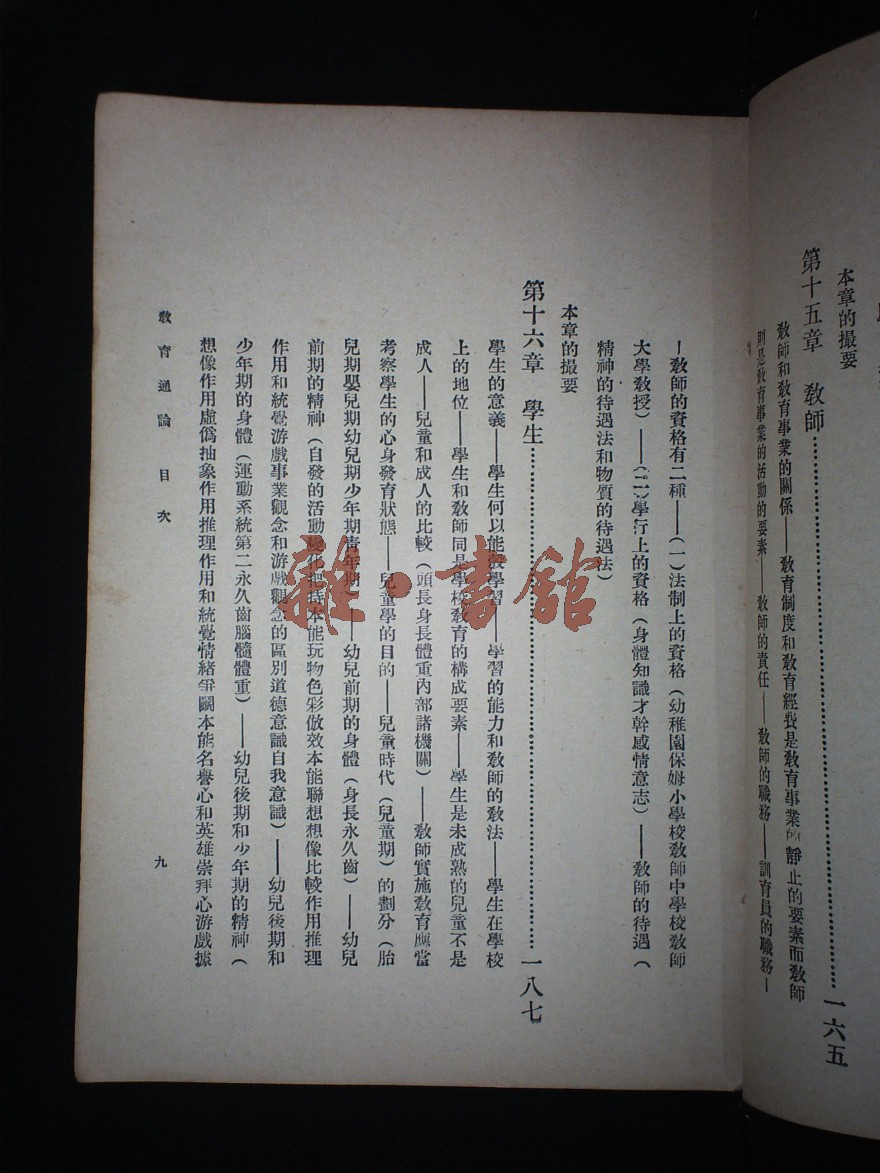 本章的撮要
第十五章　教師……一六五
教師和教育事業的關係——教育制度和教育經費是教育事業的靜止的要素而教師
則是教育事業的活動的要素——教師的責任——教師的職務——訓育員的職務—
—教師的資格有二種——（一）法制上的資格（幼稚園保姆小學校教師中學校教師
大學教授）——（二）學行上的資格（身體知識才幹感情意志）——教師的待遇（
精神的待遇法和物質的待遇法）
本章的撮要
第十六章　學生……一八七
學生的意義——學生何以能彀學習——學習的能力和教師的教法——學生在學校
上的地位——學生和教師同是學校教育的構成要素——學生是未成熟的兒童不是
成人——兒童和成人的比較（頭長身長體重內部諸機關）——教師實施教育應當
考察學生的心身發育狀態——兒童學的目的——兒童時代（兒童期）的劃分（胎
兒期嬰兒期幼兒期少年期青年期）——幼兒前期的身體（身長永久齒）——幼兒
前期的精神（自發的活動變化把持本能玩物色彩倣效本能聯想想像比較作用推理
作用和統覺游戲事業觀念和游戲觀念的區別道德意識自我意識）——幼兒後期和
少年期的身體（運動系統第二永久齒腦髓體重）——幼兒後期和少年期的精神（
想像作用虛僞抽象作用推理作用和統覺情緒爭鬭本能名譽心和英雄崇拜心游戲據
教育通論　目次
九
雜·書館